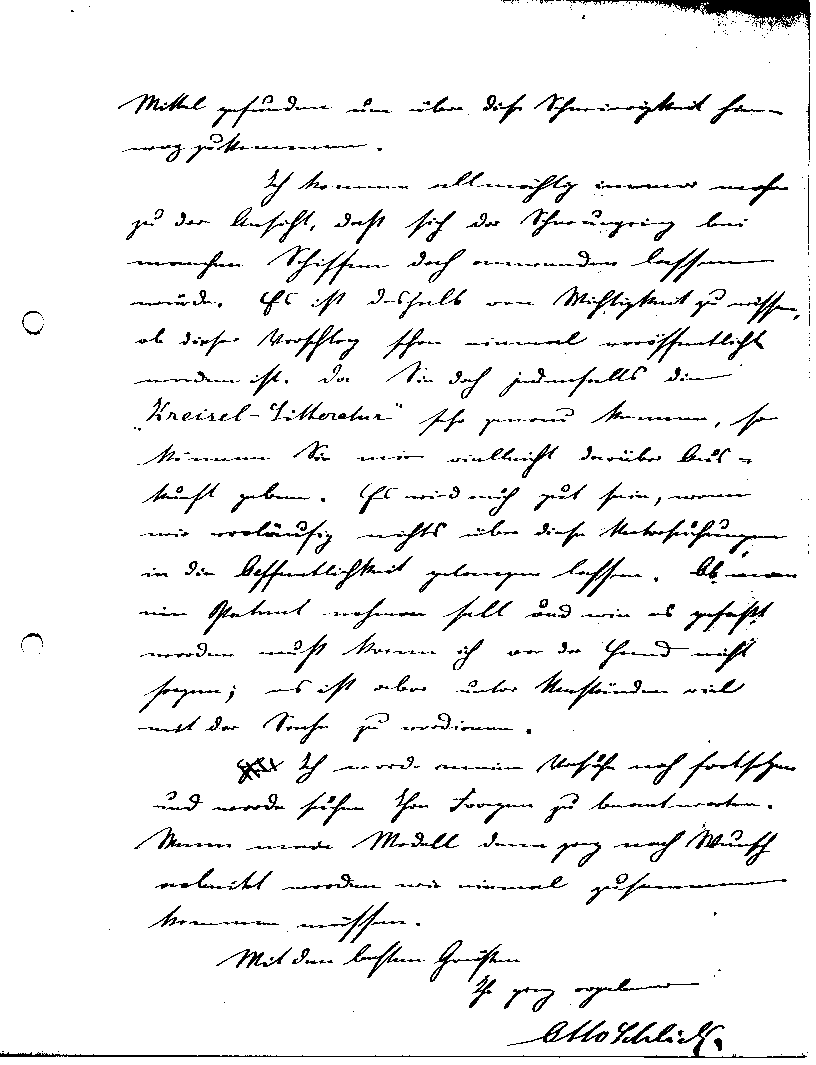 Mittel gefunden um über diese Schwierigkeit hin-
weg zu kommen.
Ich komme allmählig immer mehr
zu der Ansicht, daß sich der Schwungring bei
manchen Schiffen doch anwenden lassen
würde. Es ist deshalb von Wichtigkeit zu wissen,
ob dieser Vorschlag schon einmal veröffentlicht
worden ist. Da Sie doch jedenfalls die
"Kreisel-Litteratur" sehr genau kennen, so
können Sie mir vielleicht darüber Aus-
kunft geben. Es wird auch gut sein, wenn
wir vorläufig nichts über diese Untersuchungen
in die Oeffentlichkeit gelangen lassen. Ob man
ein Patent nehmen soll und wie es gefaßt
werden muß kann ich vor der Hand nicht
sagen; es ist aber unter Umständen viel
mit der Sache zu verdienen.
Ich werde meine Versuche noch fortsetzen
und werde suchen Ihre Fragen zu beantworten.
Wenn mein Modell dann ganz nach Wunsch
arbeitet werden wir einmal zusammen
kommen müssen.
Mit den besten Grüßen
Ihr ganz ergebener
Otto Schlick.